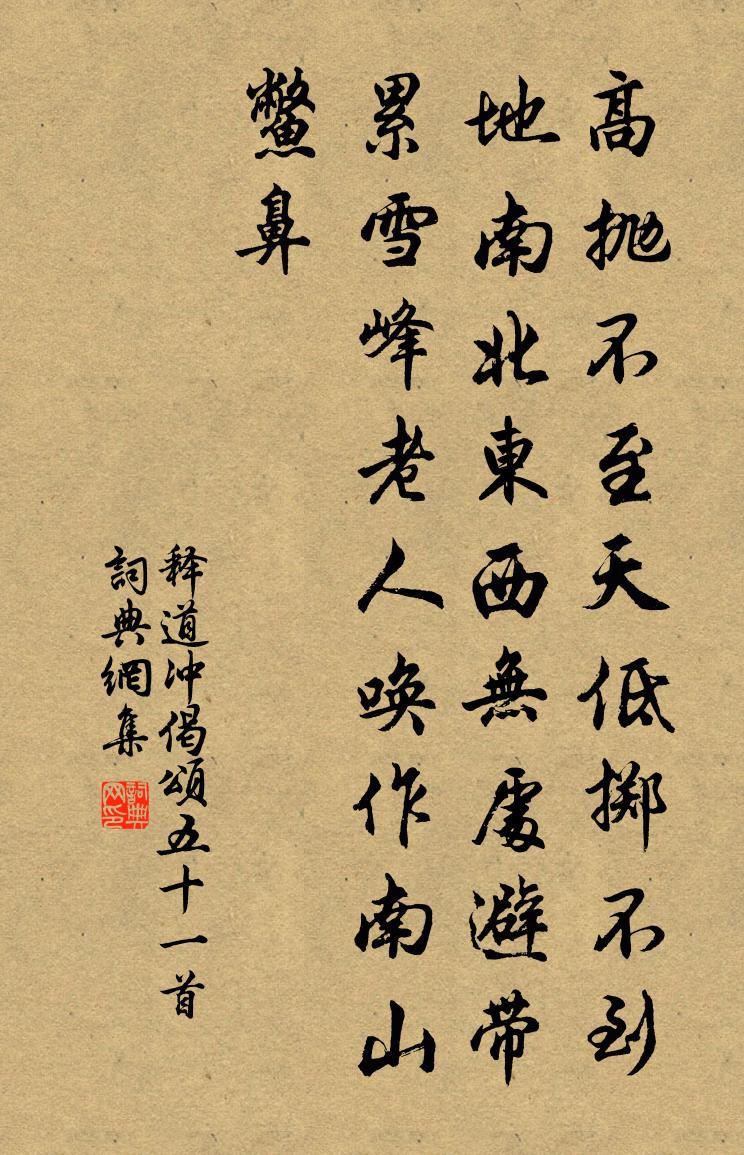 高抛不至天低掷不到
地南北東西無處避帶
累雪峰老人唤作南山
鱉鼻
释道冲偈頌五十一首
詞典網集
詞典网印